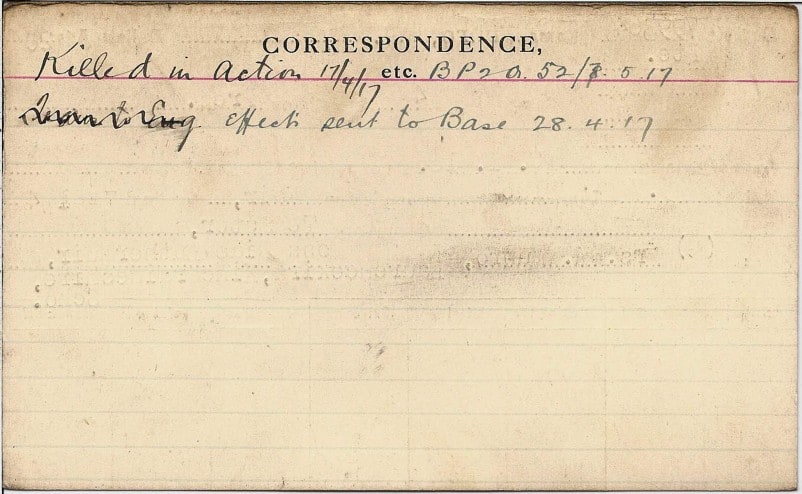 CORRESPONDENCE,
Killed in Action 17/4/17 etc. BP2 O. 52/7. 5. 17
Effects sent to Base 28. 4. 17